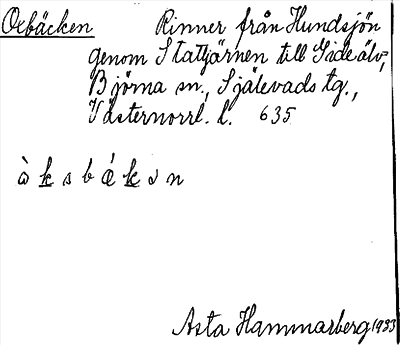 Oxbäcken Rinner från Hundsjön
genom Stattjärnen till Gideälv,
Björna sn., Själevads tg.,
Västernorrl. l. 635
à k s b æ̇ k ɔ n
Asta Hammarberg 1933